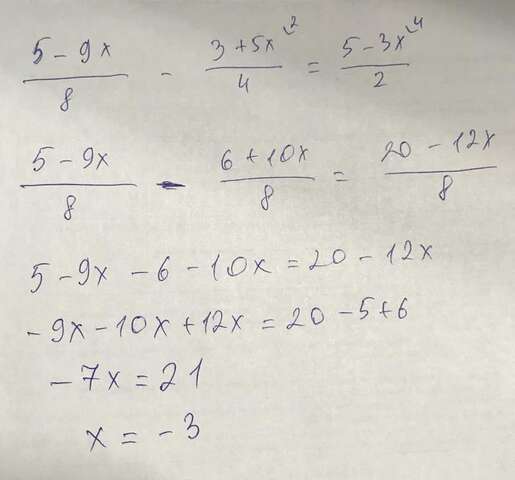 (5 - 9x)/8 - (3 + 5x)/4 ⌣2 = (5 - 3x)/2 ⌣4
(5 - 9x)/8 - (6 + 10x)/8 = (20 - 12x)/8
5 - 9x - 6 - 10x = 20 - 12x
- 9x - 10x + 12x = 20 - 5 + 6
- 7x = 21
x = - 3